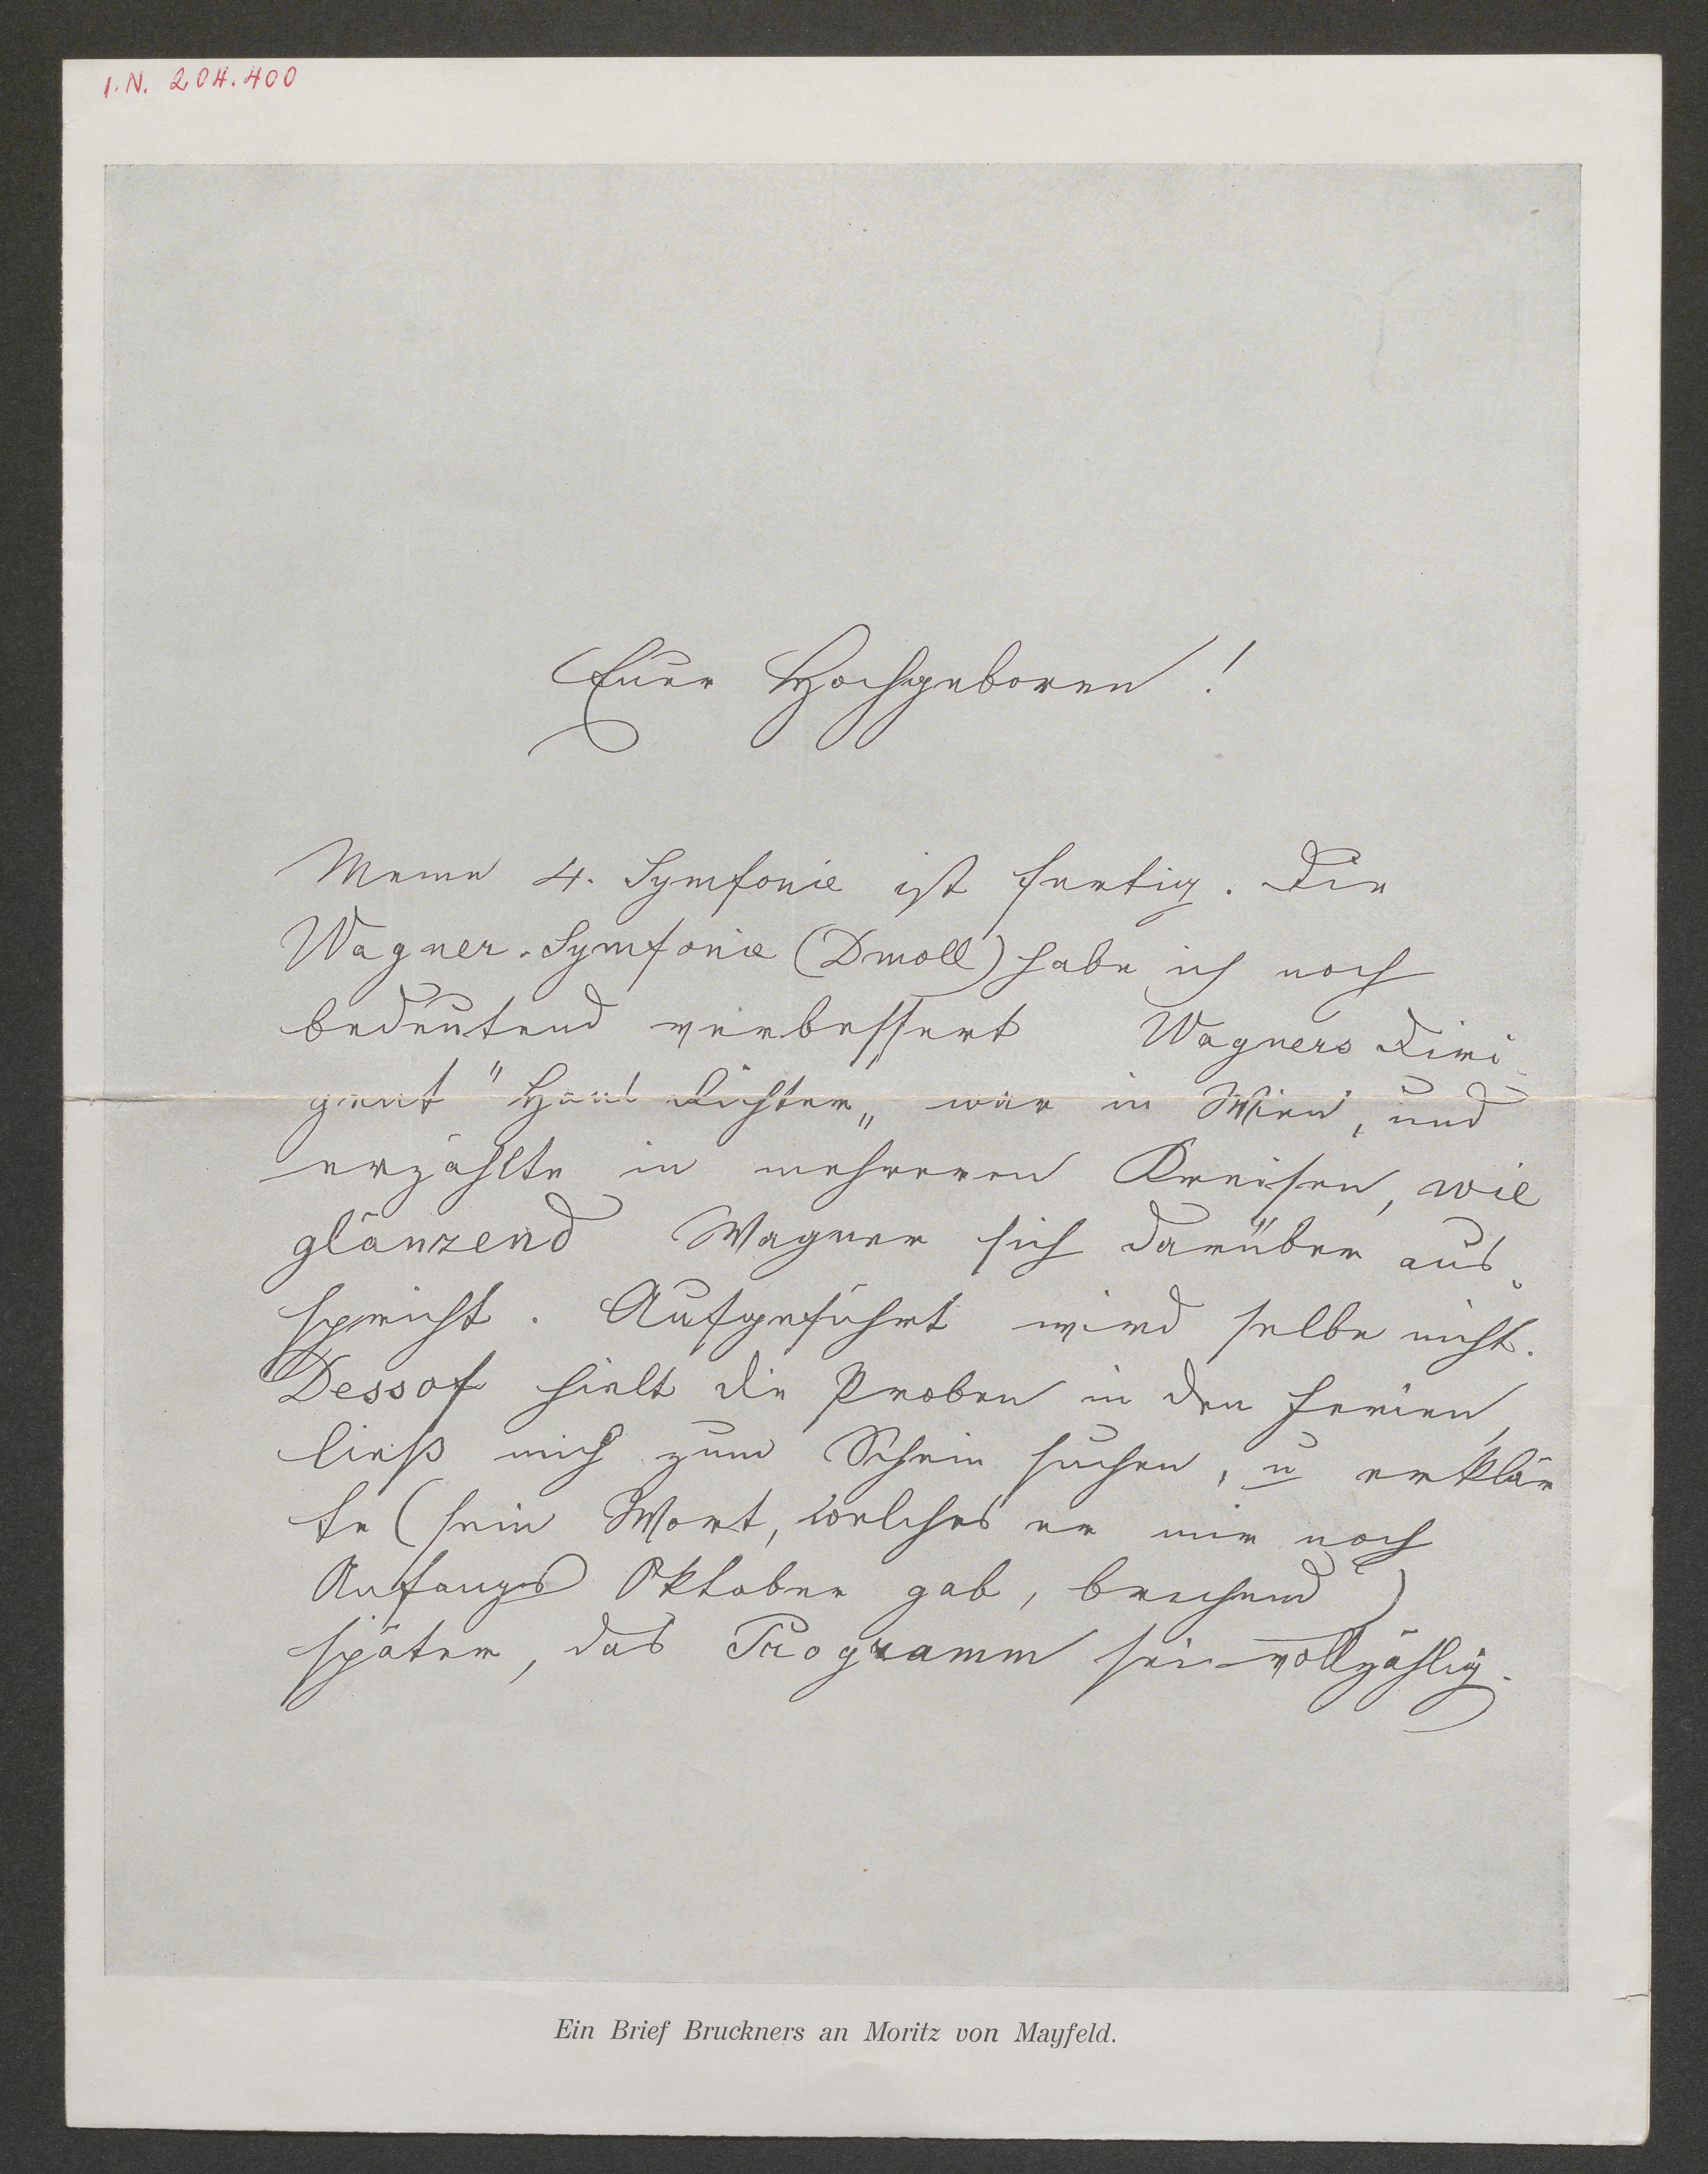 I.N. 204.400
Euer Hochgeboren!
Meine 4. Symfonie ist fertig. Die
Wagner-Symfonie (Dmoll) habe ich noch
bedeutend verbessert Wagners Diri
gent "Hans Richter„ war in Wien, und
erzählte in mehreren Kreisen, wie
glänzend Wagner sich darüber aus-
spricht. Aufgeführt wird selbe nicht.
Dessof hielt die Proben in den Ferien,
ließ mich zum Schein suchen, u erklär
te (sein Wort, welches er mir noch
Anfangs Oktober gab, brechend)
später, das Programm sei vollzählig.
Ein Brief Bruckners an Moritz von Mayfeld.